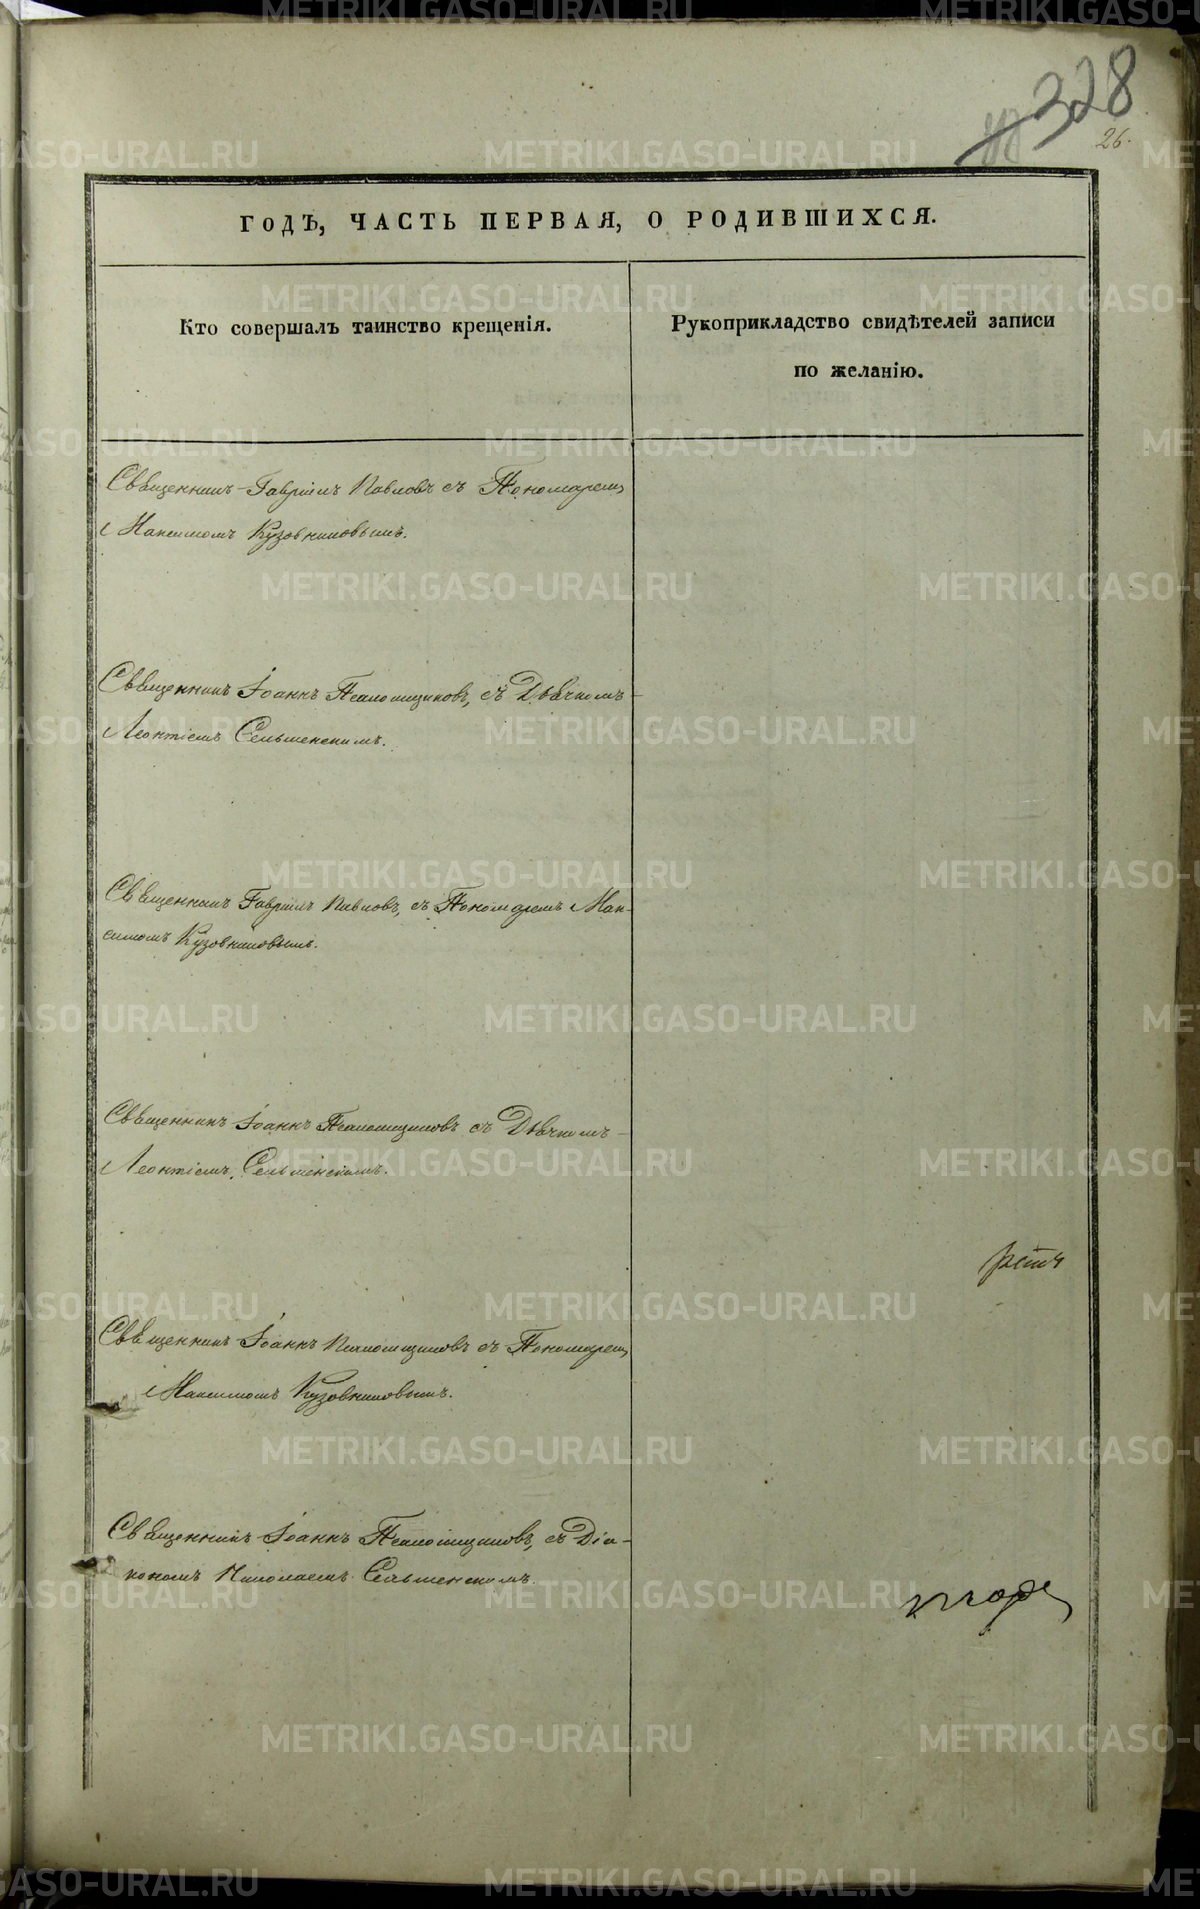 328
26.
ГОДЪ, ЧАСТЬ ПЕРВАЯ, О РОДИВШИХСЯ.
Кто совершалъ таинство крещенія.
Рукоприкладство свидѣтелей записи
по желанію.
Священникъ Гавріилъ Павловъ съ Пономарем
Максимомъ Кузовниковымъ.
Священникъ Іоаннъ Псаломщиковъ, съ Дьячкомъ
Леонтіемъ Сельменскимъ.
Священникъ Гавріилъ Павловъ, съ Пономаремъ Мак-
симомъ Кузовниковымъ.
Священникъ Іоаннъ Псаломщиковъ съ Дьячкомъ
Леонтіемъ Сельменскимъ.
Священникъ Іоаннъ Псаломщиковъ съ Пономарем
Максимомъ Кузовниковымъ.
Священникъ Іоаннъ Псаломщиковъ, съ Діа-
кономъ Николаемъ Сельменскимъ.
METRIKI.GASO-URAL.RU